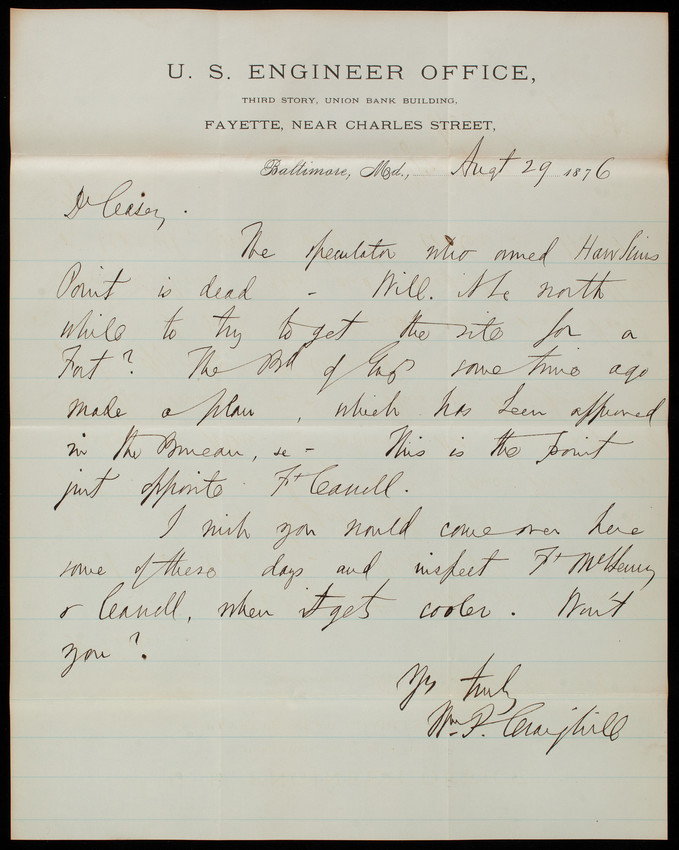 U. S. ENGINEER OFFICE,
THIRD STORY, UNION BANK BUILDING,
FAYETTE, NEAR CHARLES STREET,
Baltimore, Md., Augt 29 1876
Dr Casey.
The speculator who owned Hawkins
Point is dead - Will it be worth
while to try to get the site for a
Fort? The Bd of Engrs some time ago
made a plan, which has been approved
in the Bureau, &c - This is the point
just opposite Ft Carroll.
I wish you would come over here
some of these days and inspect Ft McHenry
& Carroll, when it gets cooler. Won't
you?
Yrs truly
Wm. P. Craighill